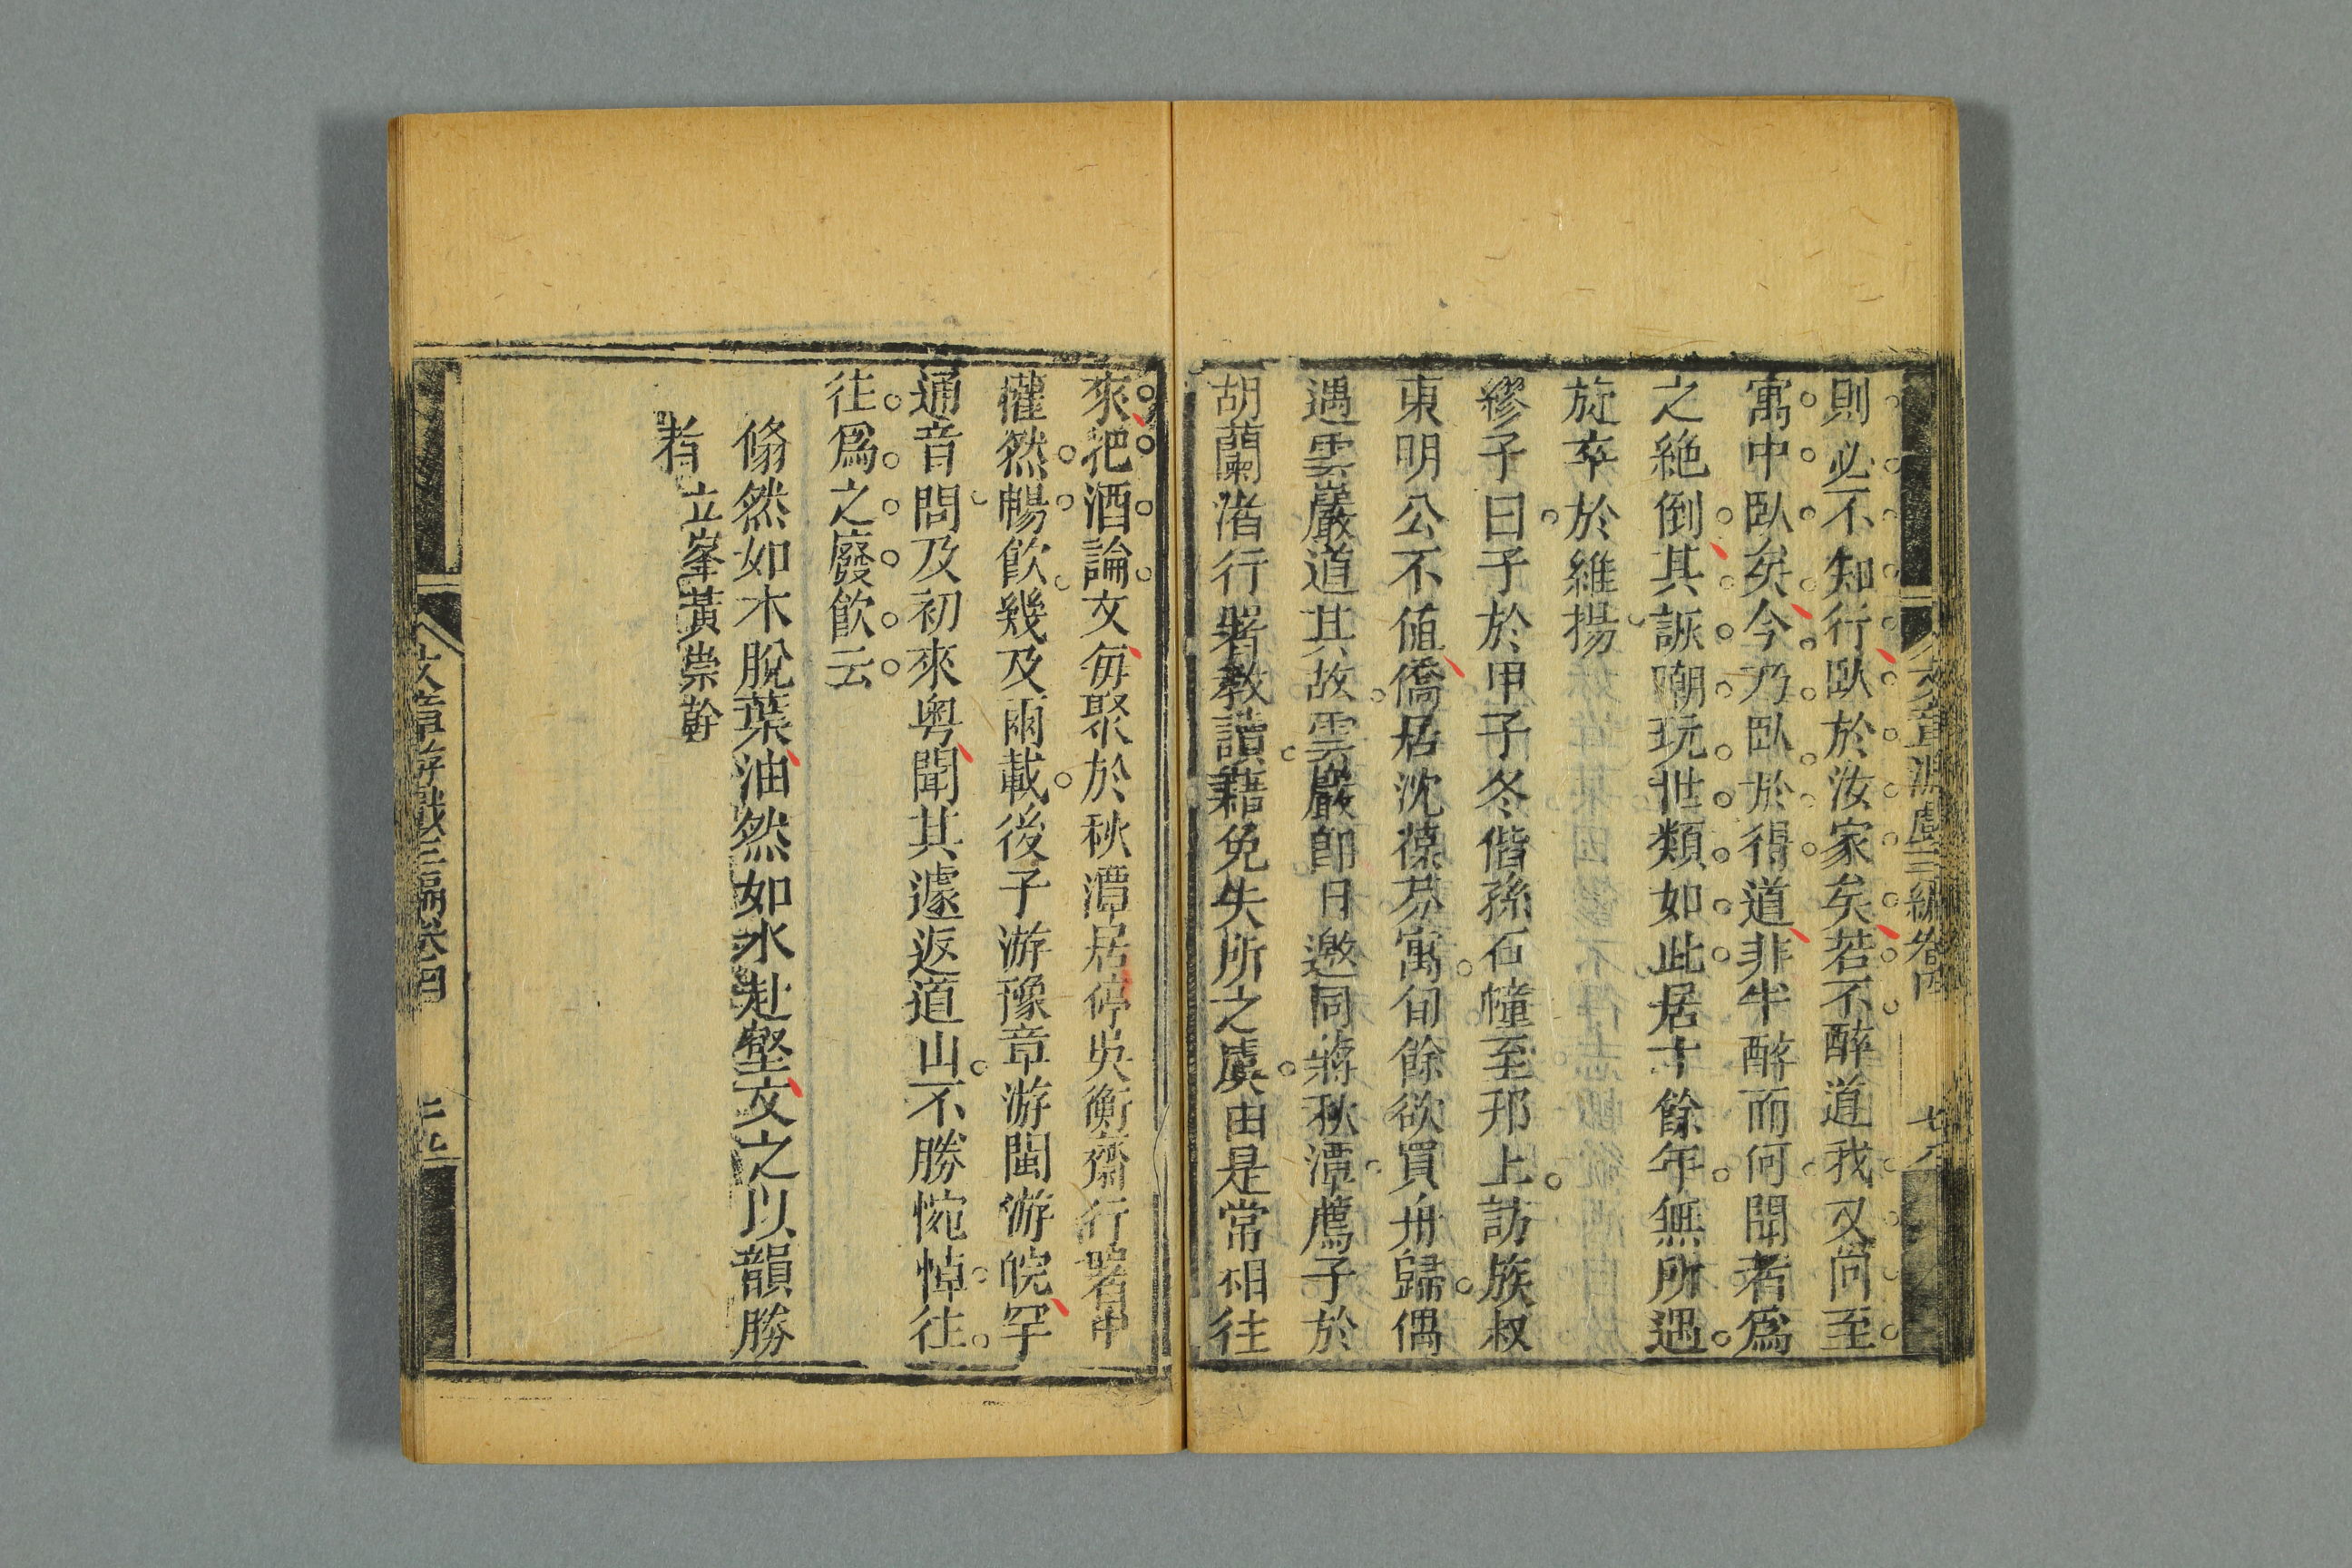 則必不知行臥於汝家矣若不醉道我又尚至
寓中臥矣今乃臥於得道非半醉而何聞者爲
之絶倒其詼嘲玩世類如此居十餘年無所遇
旋卒於維揚
繆子曰予於甲子冬偕孫石幢至邗上訪族叔
東明公不値僑居沈葆芬寓旬餘欲買舟歸偶
遇雲巖道其故雲巖即日邀同蔣秋潭薦予於
胡蘭渚行署教讀藉免失所之虞由是常相往
來把酒論文毎聚於秋潭居停吳衡齋行署中
懽然暢飮幾及兩載後予游豫章游閩游皖罕
通音問及初來粤聞其遽返道山不勝惋悼往
往爲之廢飮云
翛然如木脫葉油然如水赴壑文之以韻勝
者 立峯黃崇幹
文章游戲三編卷四